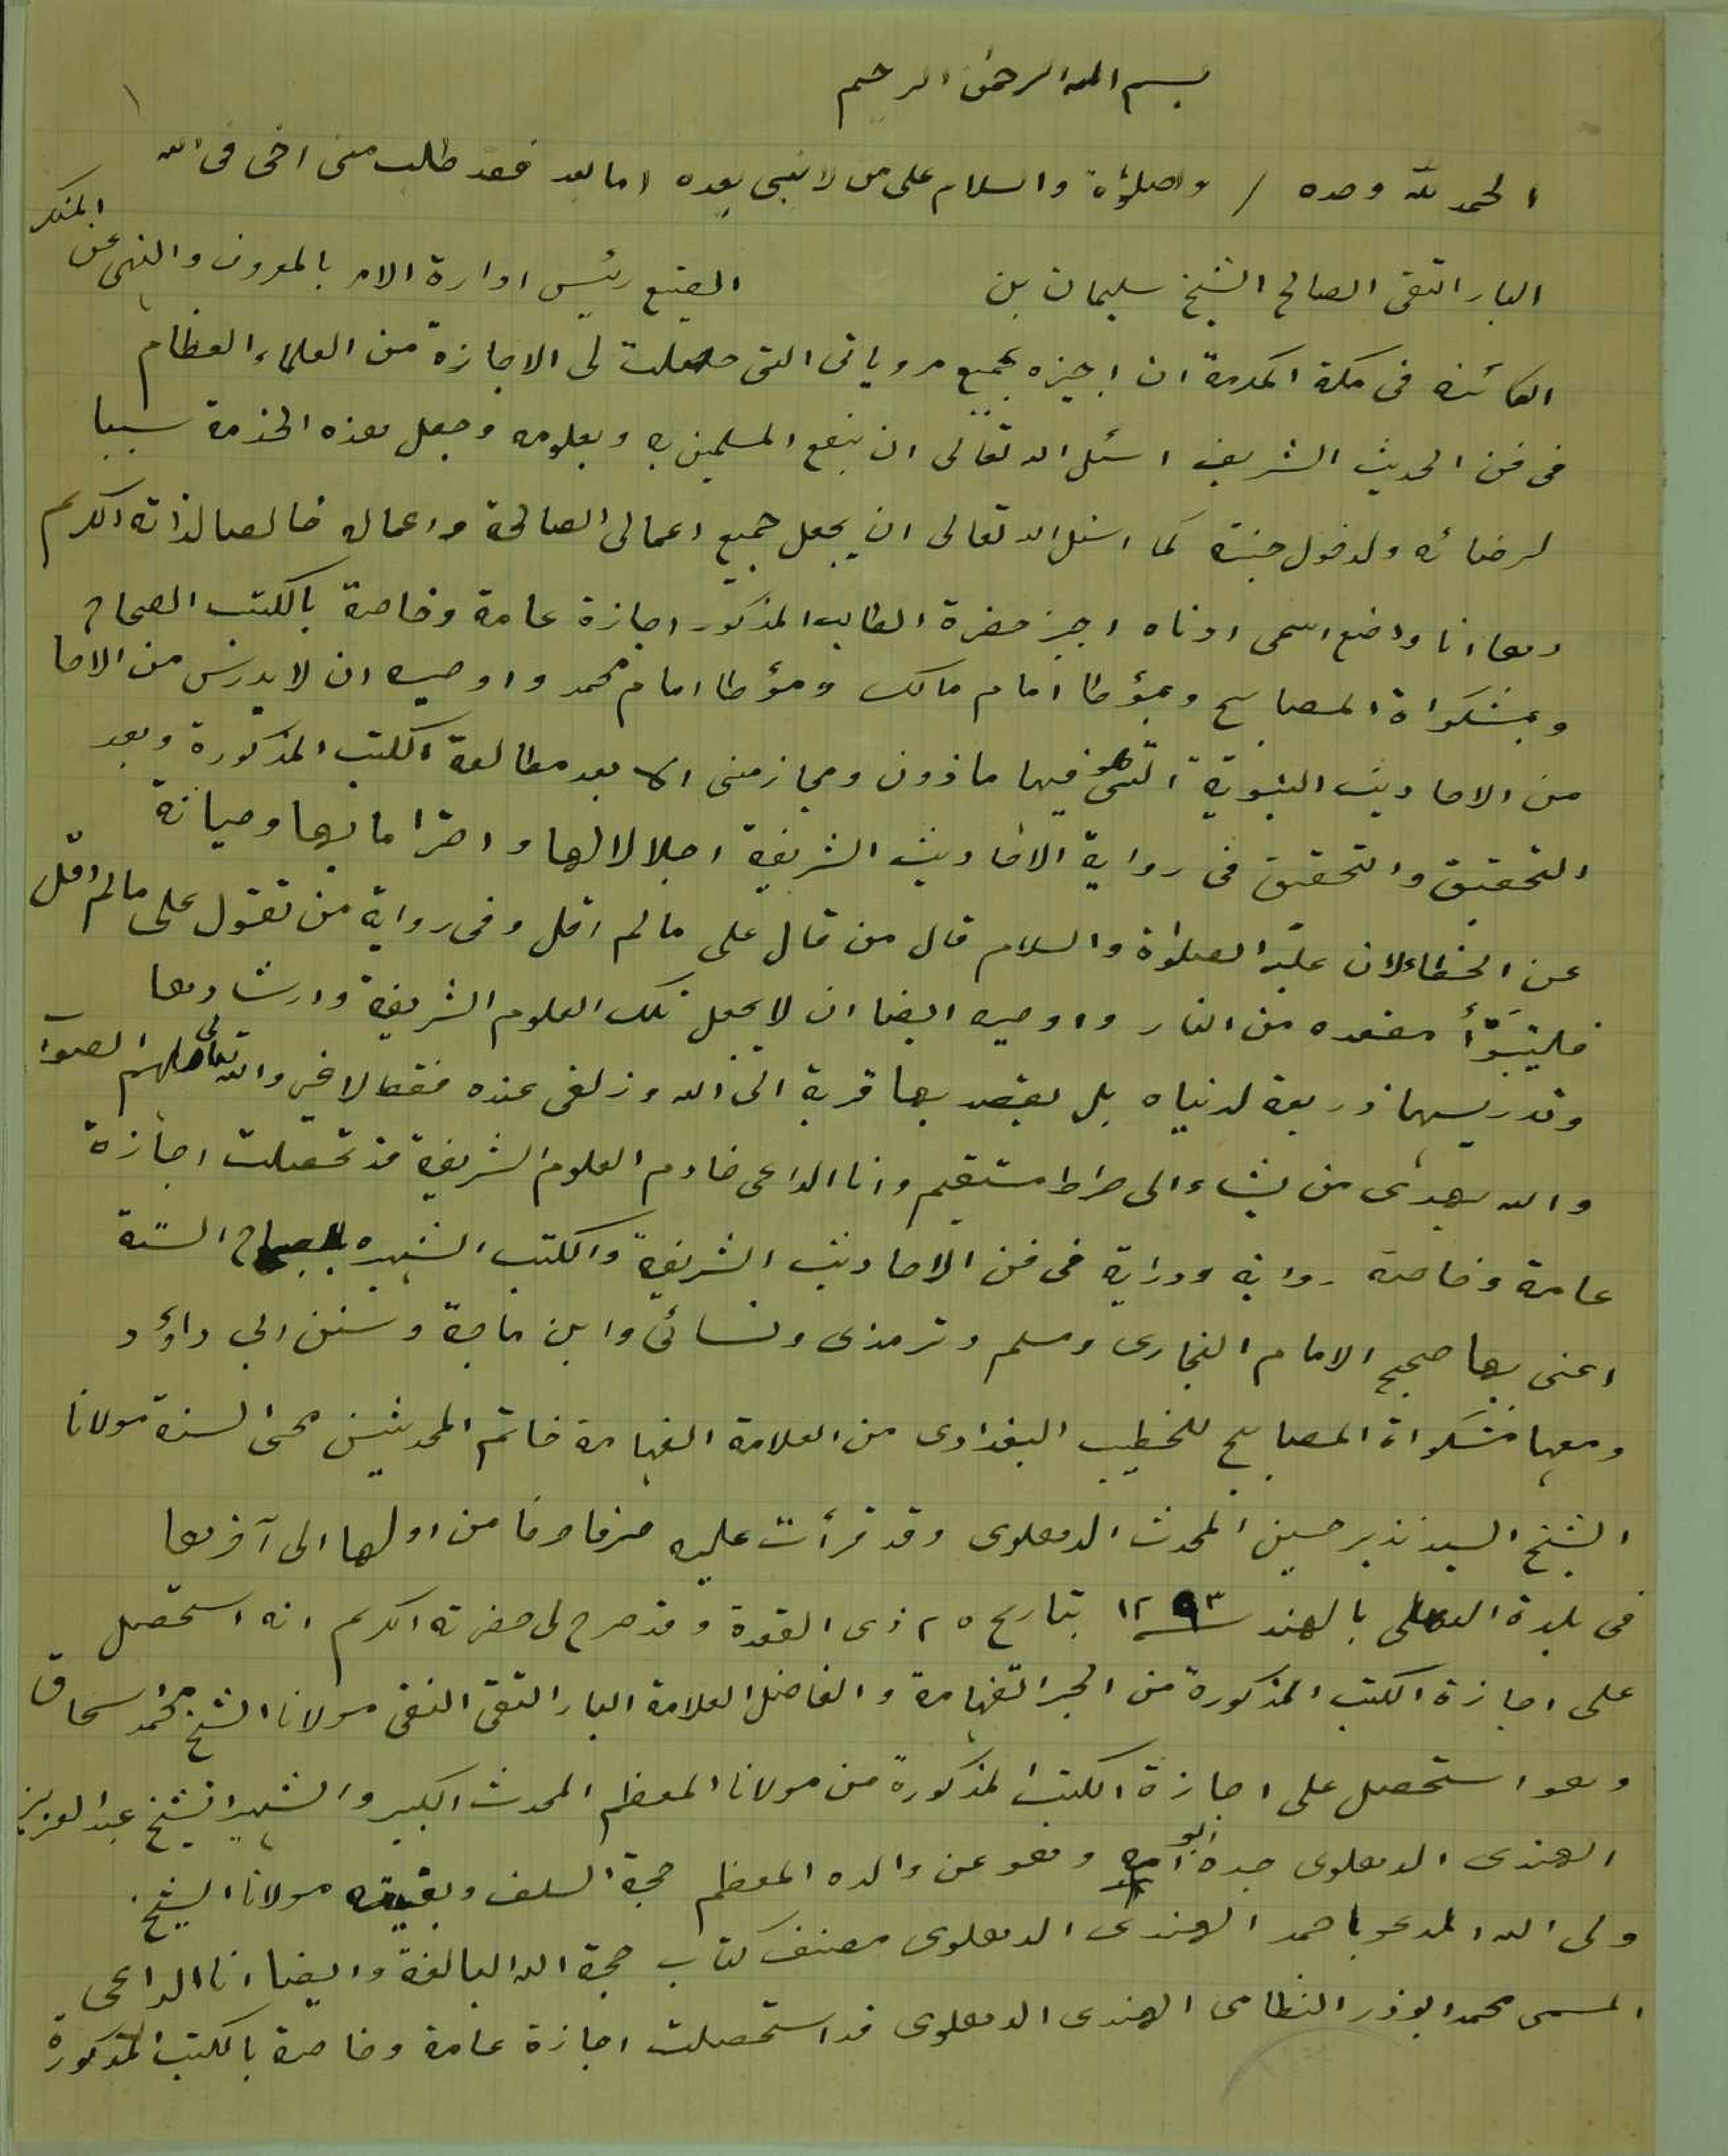 بسم الله الرحمن الرحيم
١
الحمد لله وحده / والصلوٰة والسلام على من لا نبى بعده اما بعد فقد طلب منى اخى فى الله
البار التقى الصالح الشيخ سليمان بن الصنيع رئيس ادارة الامر بالمعروف والنهى عن المنكر
الكائنه فى مكة المكرمة ان اجيزه بجميع مروياتى التى حصلت لى الاجازة من العلماء العظام
فى فن الحديث الشريف اسئل الله تعالى ان ينفع المسلمين به وبعلومه وجعل هذه الخدمة سببا
لرضائه ولدخول جنته كما اسئل الله تعالى ان يجعل جميع اعمالى الصالحة واعماله خالصا لذاته الكريم
وها انا واضع اسمى ادناه اجيز حضرة الطالب المذكور اجازة عامة وخاصة بالكتب الصحاح
وبمشكواة المصابيح وبمؤطا امام مالك ومؤطا امام محمد واوصيه ان لا يدرس من الاحا
من الاحاديث النبوية التى هو فيها ماذون ومجاز منى الا بعد مطالعة الكتب المذكورة وبعد
التحقيق والتحقيق فى رواية الاحاديث الشريفة اجلالا لها واحتراما بها وصيانة
عن الخطاء لان عليه الصلوٰة والسلام قال من قال على مالم اقل وفى رواية من تقول على مالم اقل
فليتبوَّأ مقعده من النار واوصيه ايضا ان لا يجعل تلك العلوم الشريفة وارشادها
وتدريسها ذريعة لدنياه بل يقصد بها قربة الى الله وزلفى عنده فقط لا غير والله تعالى هو الملهم الصواب
والله يهدى من يشاء الى صراط مستقيم وانا الداعى خادم العلوم الشريفة قد تحصلت اجازة
عامة وخاصة رواية ودراية فى فن الاحاديث الشريفة والكتب الشهيره بالصحاح الستة
اعنى بها صحيح الامام البخارى ومسلم وترمذى ونسائى وابن ماجة وسنن ابي داؤد
ومعها مشكواة المصابيح للخطيب البغدادى من العلامة الفهامة خاتم المحدثين محى السنة مولانا
الشيخ السيد نذير حسين المحدث الدهلوى وقد قرأت عليه حرفا حرفا من اولها الى آخرها
فى بلدة الدهلى بالهند سنه ١٢٩٣ بتاريخ ٢٥ ذى القعدة وقد صرح لى حضرته الكريم انه استحصل
على اجازة الكتب المذكورة من الحبر الفهامة والفاضل العلامة البار التقى النقى مولانا الشيخ محمد اسحاق
وهو استحصل على اجازة الكتب المذكورة من مولانا المعظم المحدث الكبير والشهير الشيخ عبد العزيز
الهندى الدهلوى جده ابو امه وهو عن والده المعظم حجة السلف وبقيته مولانا الشيخ
ولى الله المدعو باحمد الهندى الدهلوى مصنف كتاب حجة الله البالغة وايضا انا الداعى
المسمى محمد ابوذر النظامى الهندى الدهلوى قد استحصلت اجازة عامة وخاصة بالكتب المذكورة